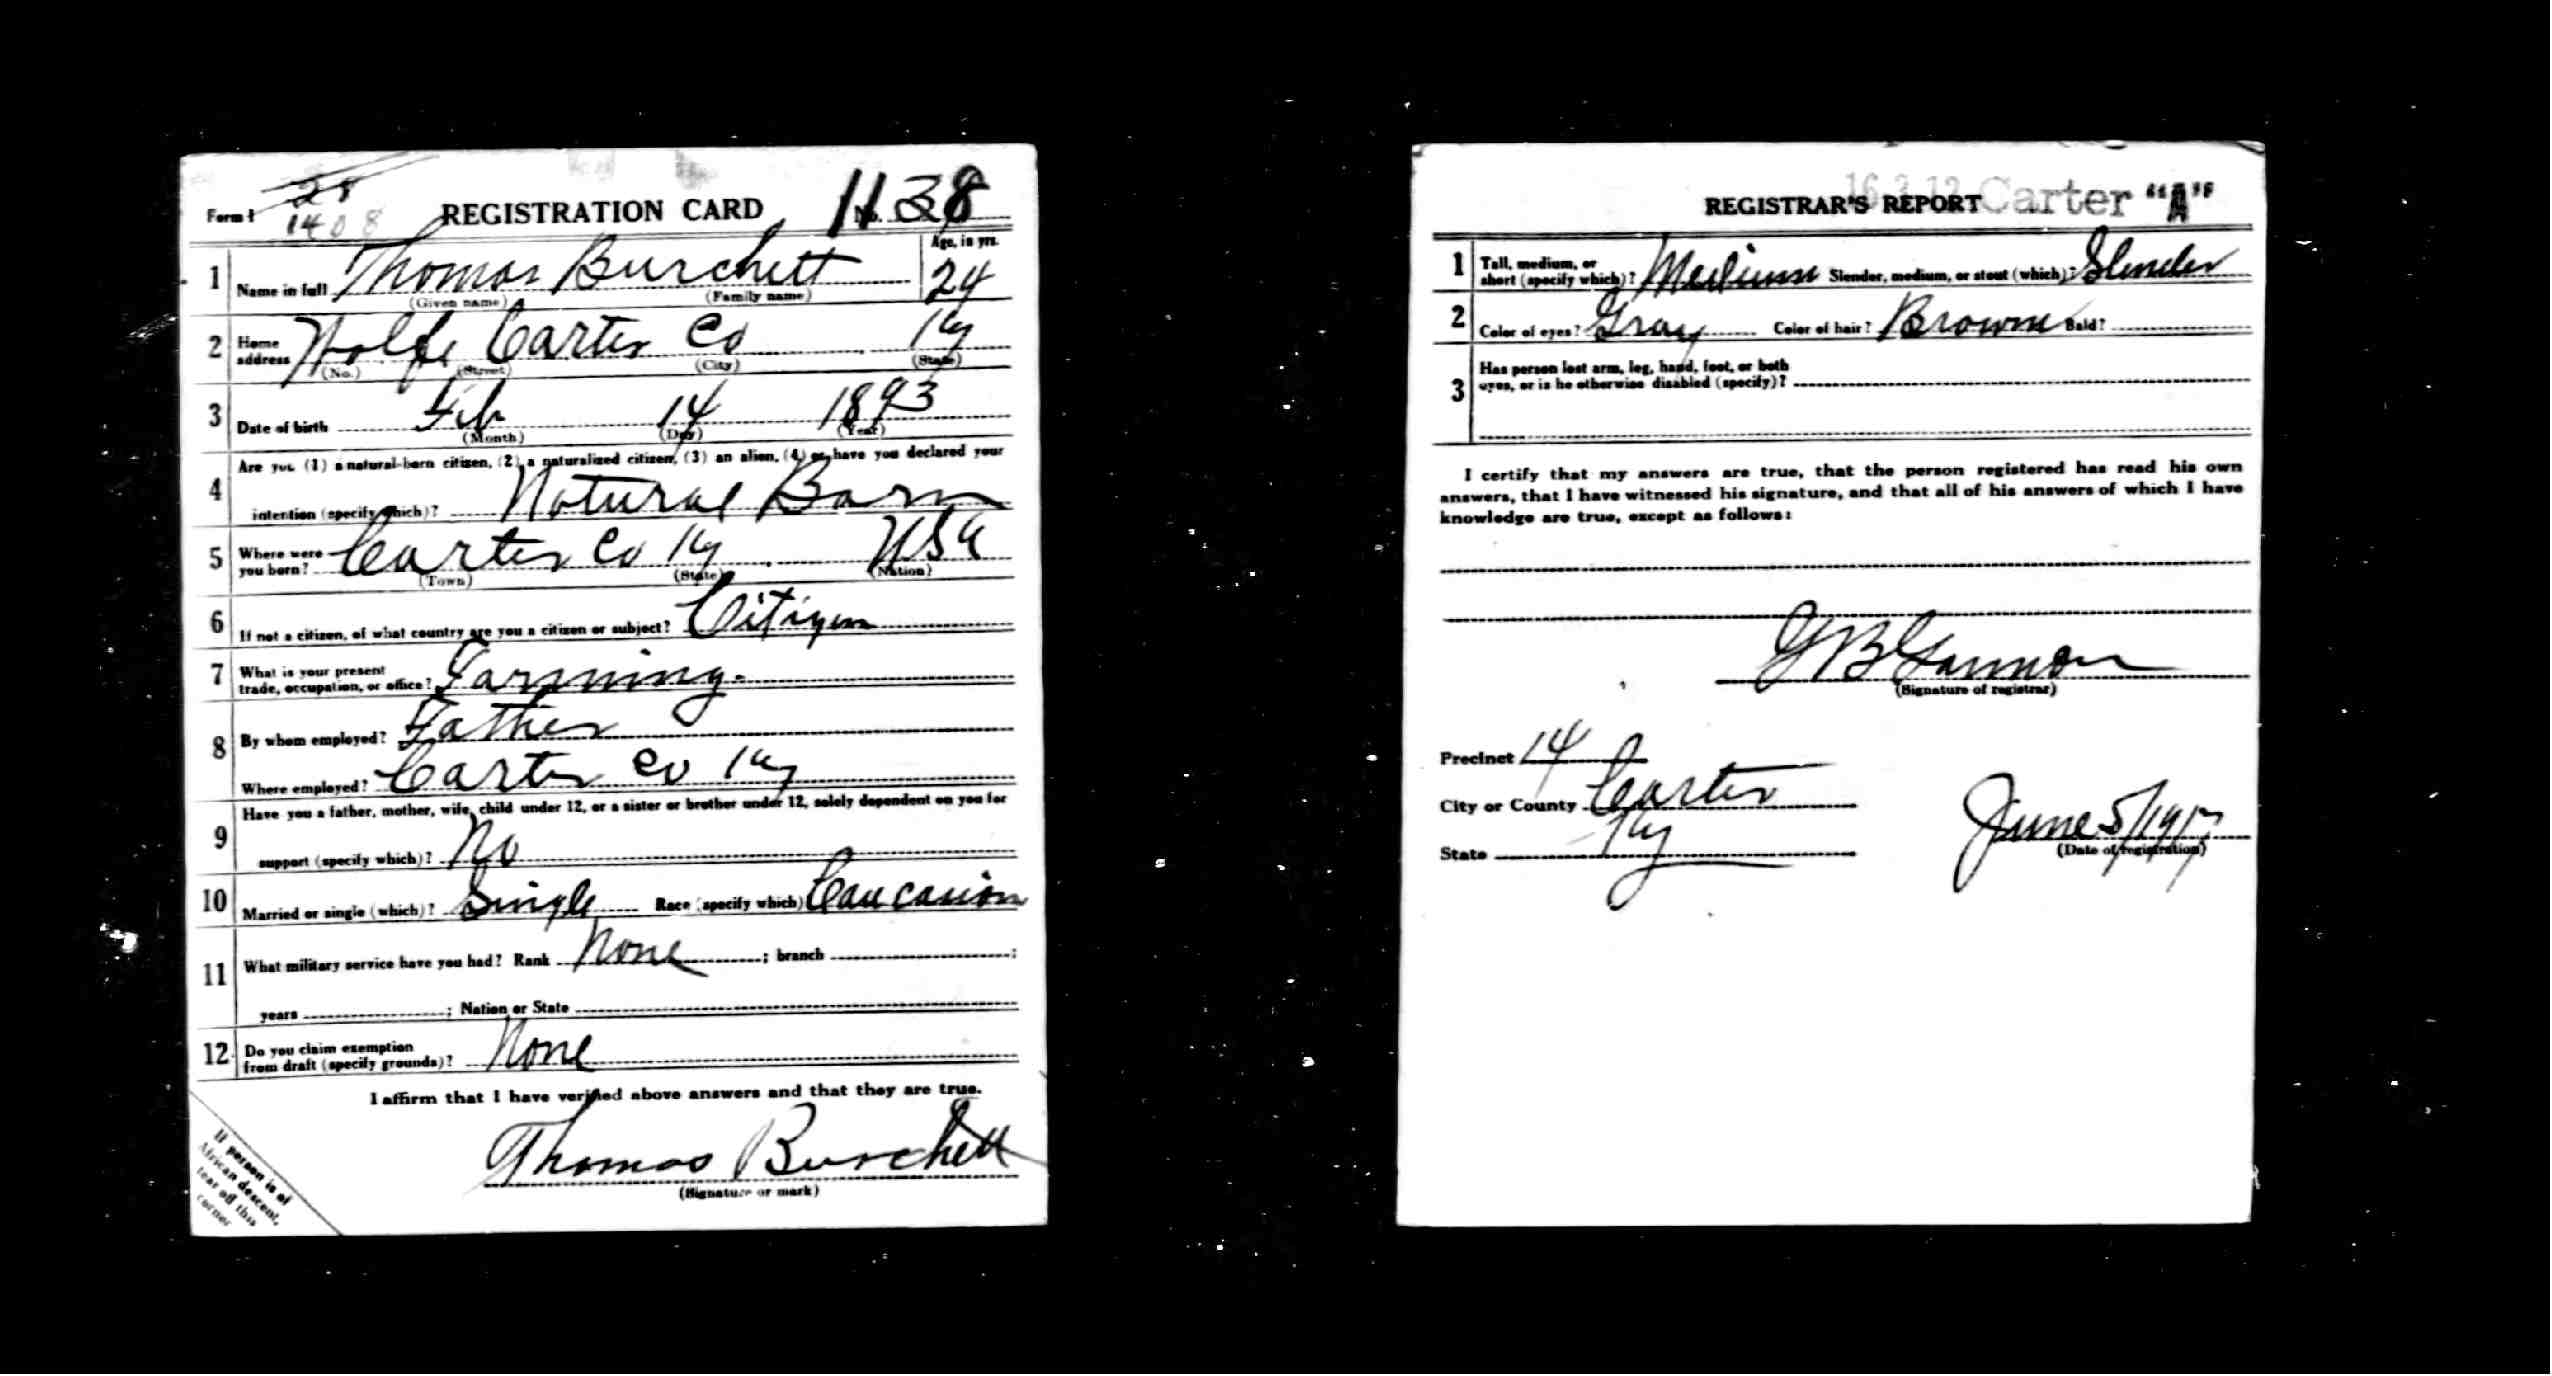 28
Form 1 1408 REGISTRATION CARD No. 38 1138
1 Name in full Thomas Burchett Age, in yrs. 24
(Given name) (Family name)
2 Home address Wolfe Carter Co Ky
(No.) (Street) (City) (State)
3 Date of birth Feb 14 1893
(Month) (Day) (Year)
4 Are you (1) a natural-born citizen, (2) a naturalized citizen, (3) an alien, (4) or have you declared your
intention (specify which)? Natural Born
5 Where were you born? Carter Co Ky USA
(Town) (State) (Nation)
6 If not a citizen, of what country are you a citizen or subject? Citizen
7 What is your present trade, occupation, or office? Farming.
8 By whom employed? Father
Where employed? Carter Co Ky
9 Have you a father, mother, wife, child under 12, or a sister or brother under 12, solely dependent on you for
support (specify which)? No
10 Married or single (which)? Single Race (specify which) Caucasion
11 What military service have you had? Rank None ; branch ;
years ; Nation or State
12 Do you claim exemption from draft (specify grounds)? None
I affirm that I have verified above answers and that they are true.
Thomas Burchett
(Signature or mark)
If person is of
African descent,
tear off this
corner
16-3-12 Carter "A"
REGISTRAR'S REPORT
1 Tall, medium, or short (specify which)? Medium Slender, medium, or stout (which)? Slender
2 Color of eyes? Gray Color of hair? Brown Bald?
3 Has person lost arm, leg, hand, foot, or both
eyes, or is he otherwise disabled (specify)?
I certify that my answers are true, that the person registered has read his own
answers, that I have witnessed his signature, and that all of his answers of which I have
knowledge are true, except as follows:
G B Gannon
(Signature of registrar)
Precinct 14
City or County Carter
State Ky
June 5/1917
(Date of registration)